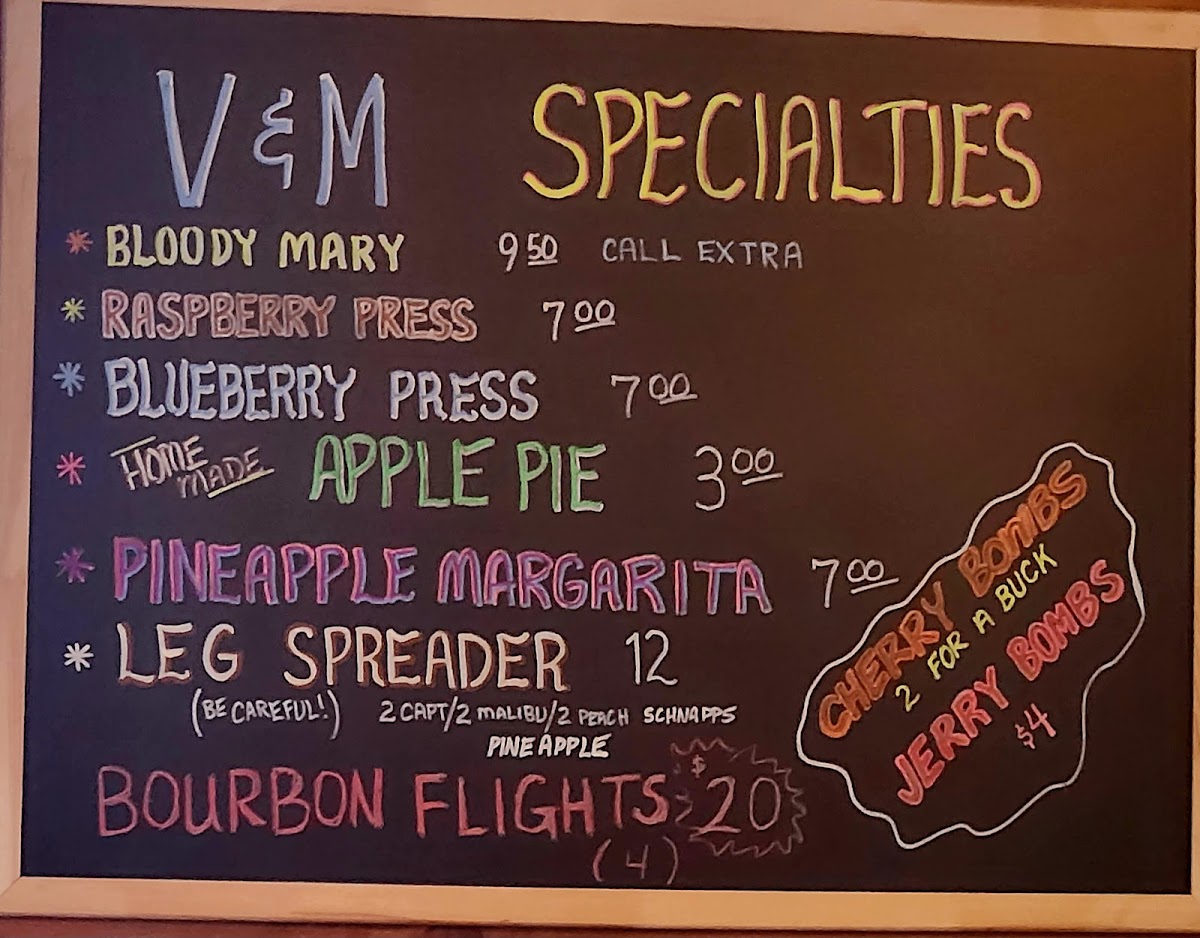 V & M SPECIALTIES
* BLOODY MARY 9 50 CALL EXTRA
* RASPBERRY PRESS 7 00
* BLUEBERRY PRESS 7 00
* HOME MADE APPLE PIE 3 00
* PINEAPPLE MARGARITA 7 00
* LEG SPREADER 12
(BE CAREFUL!) 2 CAPT/2 MALIBU/2 PEACH SCHNAPPS
PINEAPPLE
BOURBON FLIGHTS $20
(4)
CHERRY BOMBS
2 FOR A BUCK
JERRY BOMBS
$4